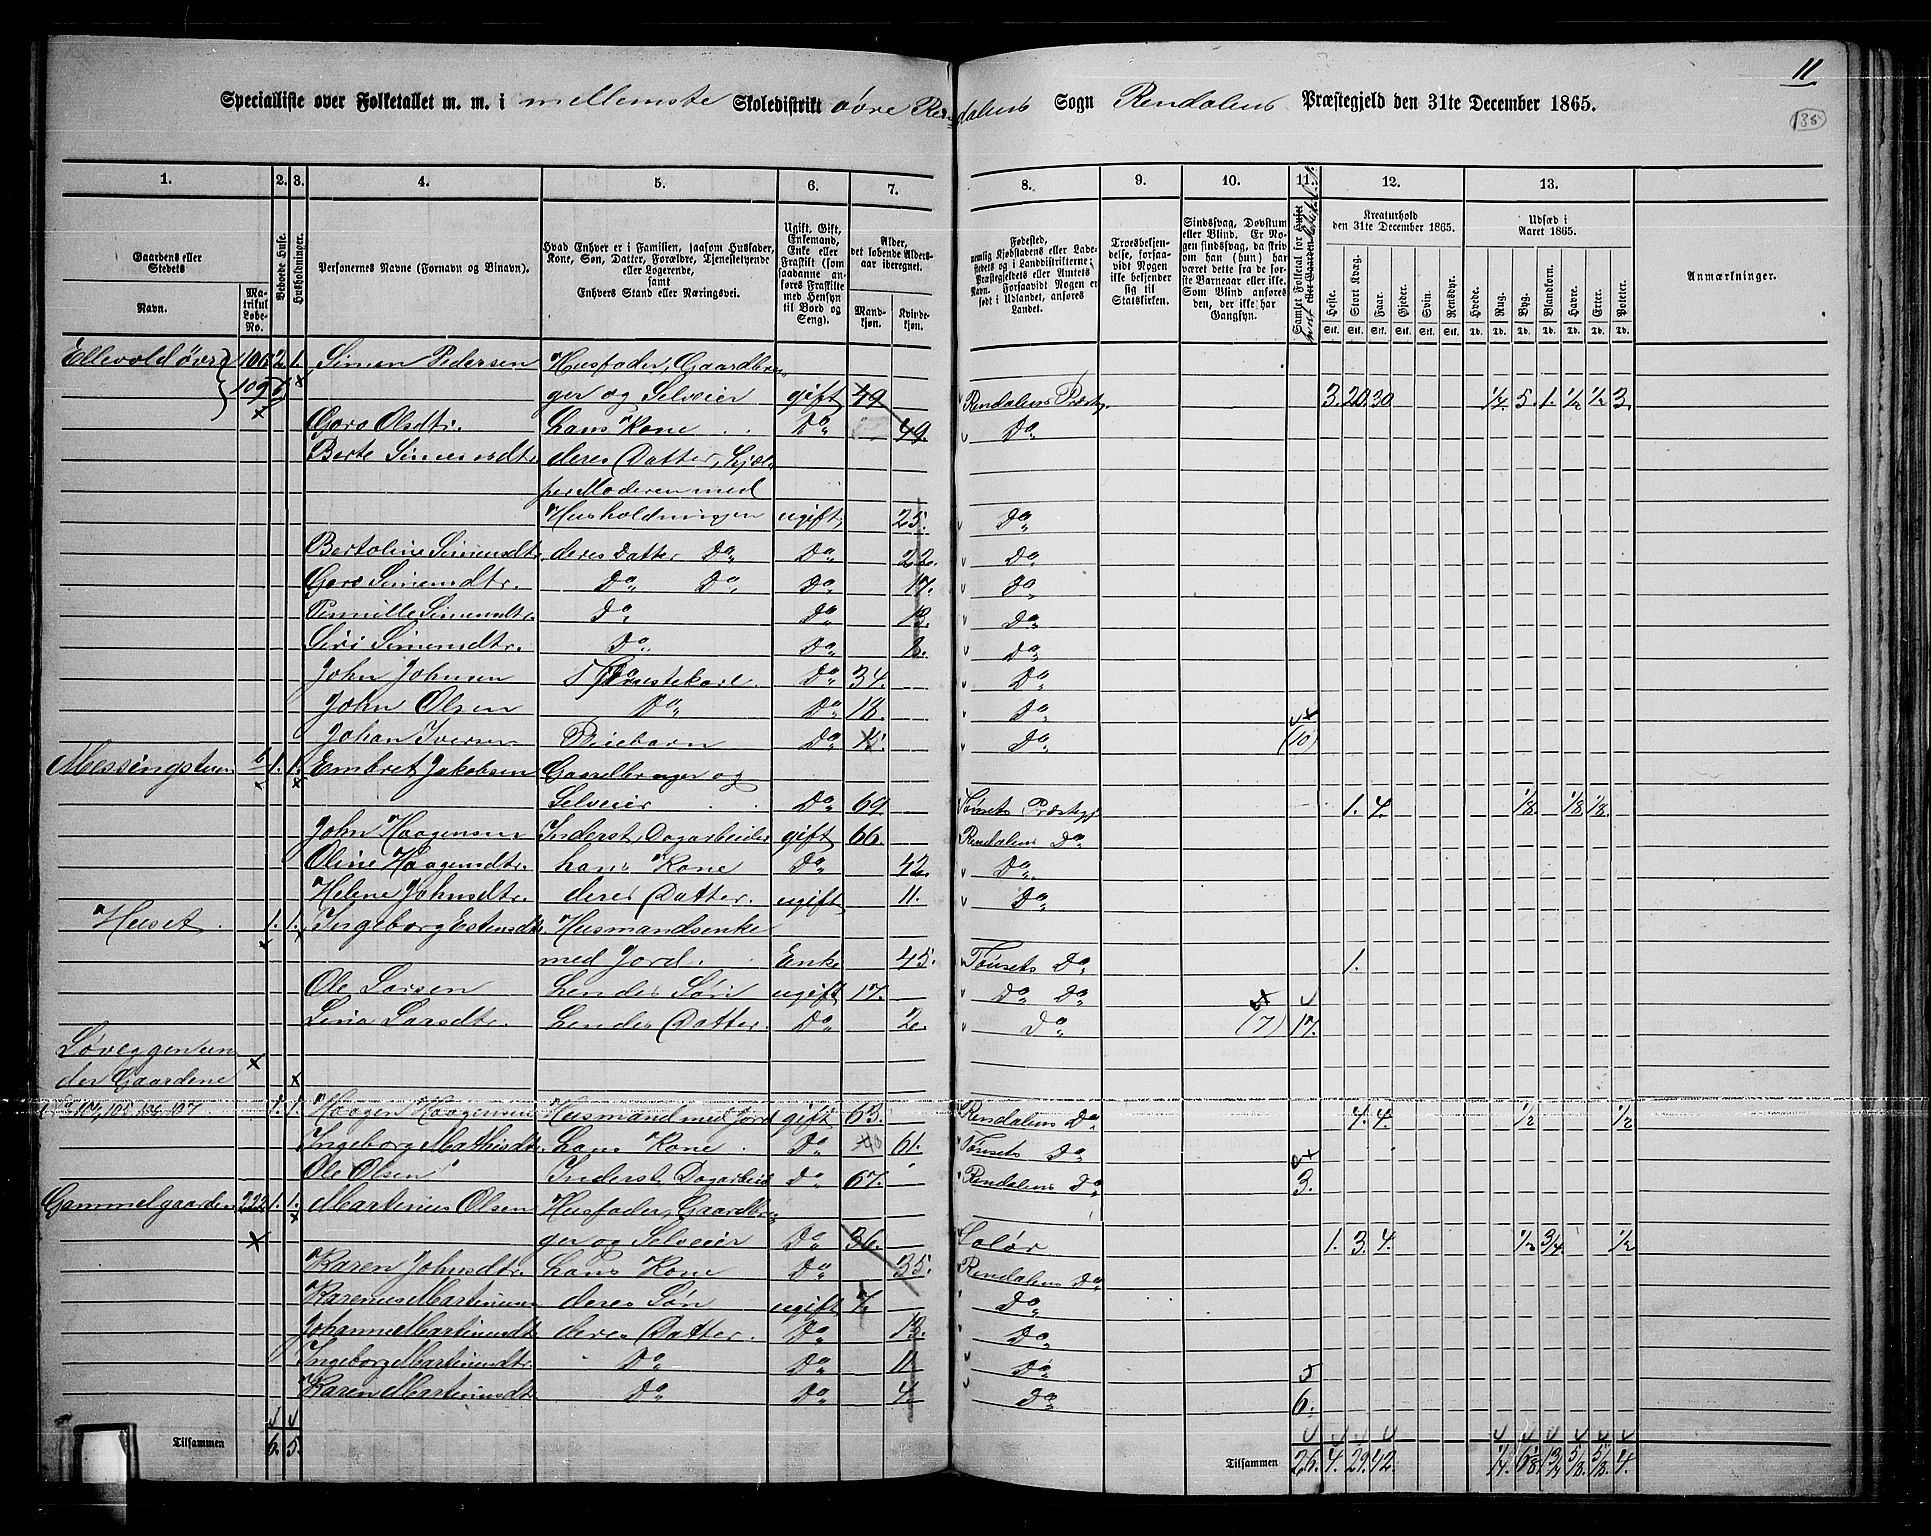 11
135
Specialliste over Folketallet m. m. i mellemste Skoledistrikt øvre Rendalens Sogn Rendalens Præstegjeld den 31te December 1865.
1. 2. 3. 4. 5. 6. 7. 8. 9. 10. 11. 12. 13.
Gaardens eller Stedets
Navn.
Matrikul Løbe-No.
Beboede Huse.
Husholdninger.
Personernes Navne (Fornavn og Binavn).
Hvad Enhver er i Familien, saasom Husfader, Kone, Søn, Datter, Forældre, Tjenestetyende eller Logerende, samt Enhvers Stand eller Næringsvei.
Ugift, Gift, Enkemand, Enke eller Fraskilt (som saadanne anføres Fraskilte med Hensyn til Bord og Seng).
Alder, det løbende Alders-aar iberegnet.
Mand-kjøn.
Kvinde-kjøn.
Fødested, nemlig Kjøbstadens eller Ladestedets og i Landdistrikterne: Præstegjeldets eller Amtets Navn. Forsaavidt Nogen er født i Udlandet, anføres Landet.
Troesbekjendelse, forsaavidt Nogen ikke bekjender sig til Statskirken.
Sindssvag, Døvstum eller Blind. Er Nogen sindssvag, da skrives om han (hun) har været dette fra de første Barneaar eller ikke. Som Blind ansøres den, der ikke har Gangsyn.
Samlet Folketal for Huset
Kreaturhold den 31te December 1865.
Heste. Stort Kvæg. Faar. Gjeder. Svin. Rensdyr.
Stk. Stk. Stk. Stk. Stk. Stk.
Udsæd i Aaret 1865.
Hvede. Rug. Byg. Blandkorn. Havre. Erter. Poteter.
Td. Td. Td. Td. Td. Td. Td.
Anmærkninger.
Ellevold øvre 106 2 1. Simen Pedersen Husfader, Gaardbru-
109 ger og Selveier gift 49 Rendalens Præstg. 3. 20. 30 1/4. 5. 1. 1/2 1/2 3.
Goro Olsdtr. hans Kone Do 49. Do
Berte Simensdtr. deres Datter, hjæl-
per Moderen med
Husholdningen ugift 25. Do
Bertoline Simensdtr. deres Datter Do Do 22. Do
Goro Simensdtr. Do Do Do 17. Do
Pernille Simensdtr. Do Do 13. Do
Siri Simensdtr. Do Do 8. Do
John Johnsen Tjenestekarl. Do 34. Do
John Olsen Do Do 18. Do
Johan Iversen Pleiebarn Do 15. Do (10)
Messingstuen 6 1. 1. Embret Jakobsen Gaardbruger og
Selveier Do 69. Tønsets Præstgj. 1. 4. 1/8 1/8 1/8
John Haagensen Inderst, Dagarbeider gift 66. Rendalens Do
Oline Haagensdtr. hans Kone Do 42. Do
Helene Johnsdtr. deres Datter. ugift 11. Do
Huset. 1. 1. Ingeborg Estensdtr. Husmandsenke
med Jord. Enke 45. Tønsets Do 1.
Ole Larsen hendes Søn ugift 17. Do Do
Lina Larsdtr. hendes Datter. Do 2. Do (7) 17.
Løveggen un-
der Gaardene
1. 1. Haagen Haagensen Husmand med Jord gift 63. Rendalens Do 4. 4. 1/2 1/2
Ingeborg Mathisdtr. hans Kone. Do 61. Tønsets Do
Ole Olsen Inderst, Dagarbeid Do 67. Rendalens Do 3.
Gammelgaarden 222 1. 1. Martinus Olsen Husfader, Gaardbru-
ger og Selveier Do 36. Solør 1. 3. 4. 1/2 3/4 1/2
Karen Johnsdtr. hans Kone Do 35. Rendalens Do
Karenus Martinusen deres Søn ugift 7. Do
Johanne Martinusdt deres Datter. Do 13. Do
Ingeborg Martinusdtr. Do Do 11 Do 5
Karen Martinusdt Do Do 4. Do 6.
Tilsammen 6. 5. Tilsammen 26. 4. 29. 42. 1/4 6 1/8 1 3/4 5/8 5/8 4.